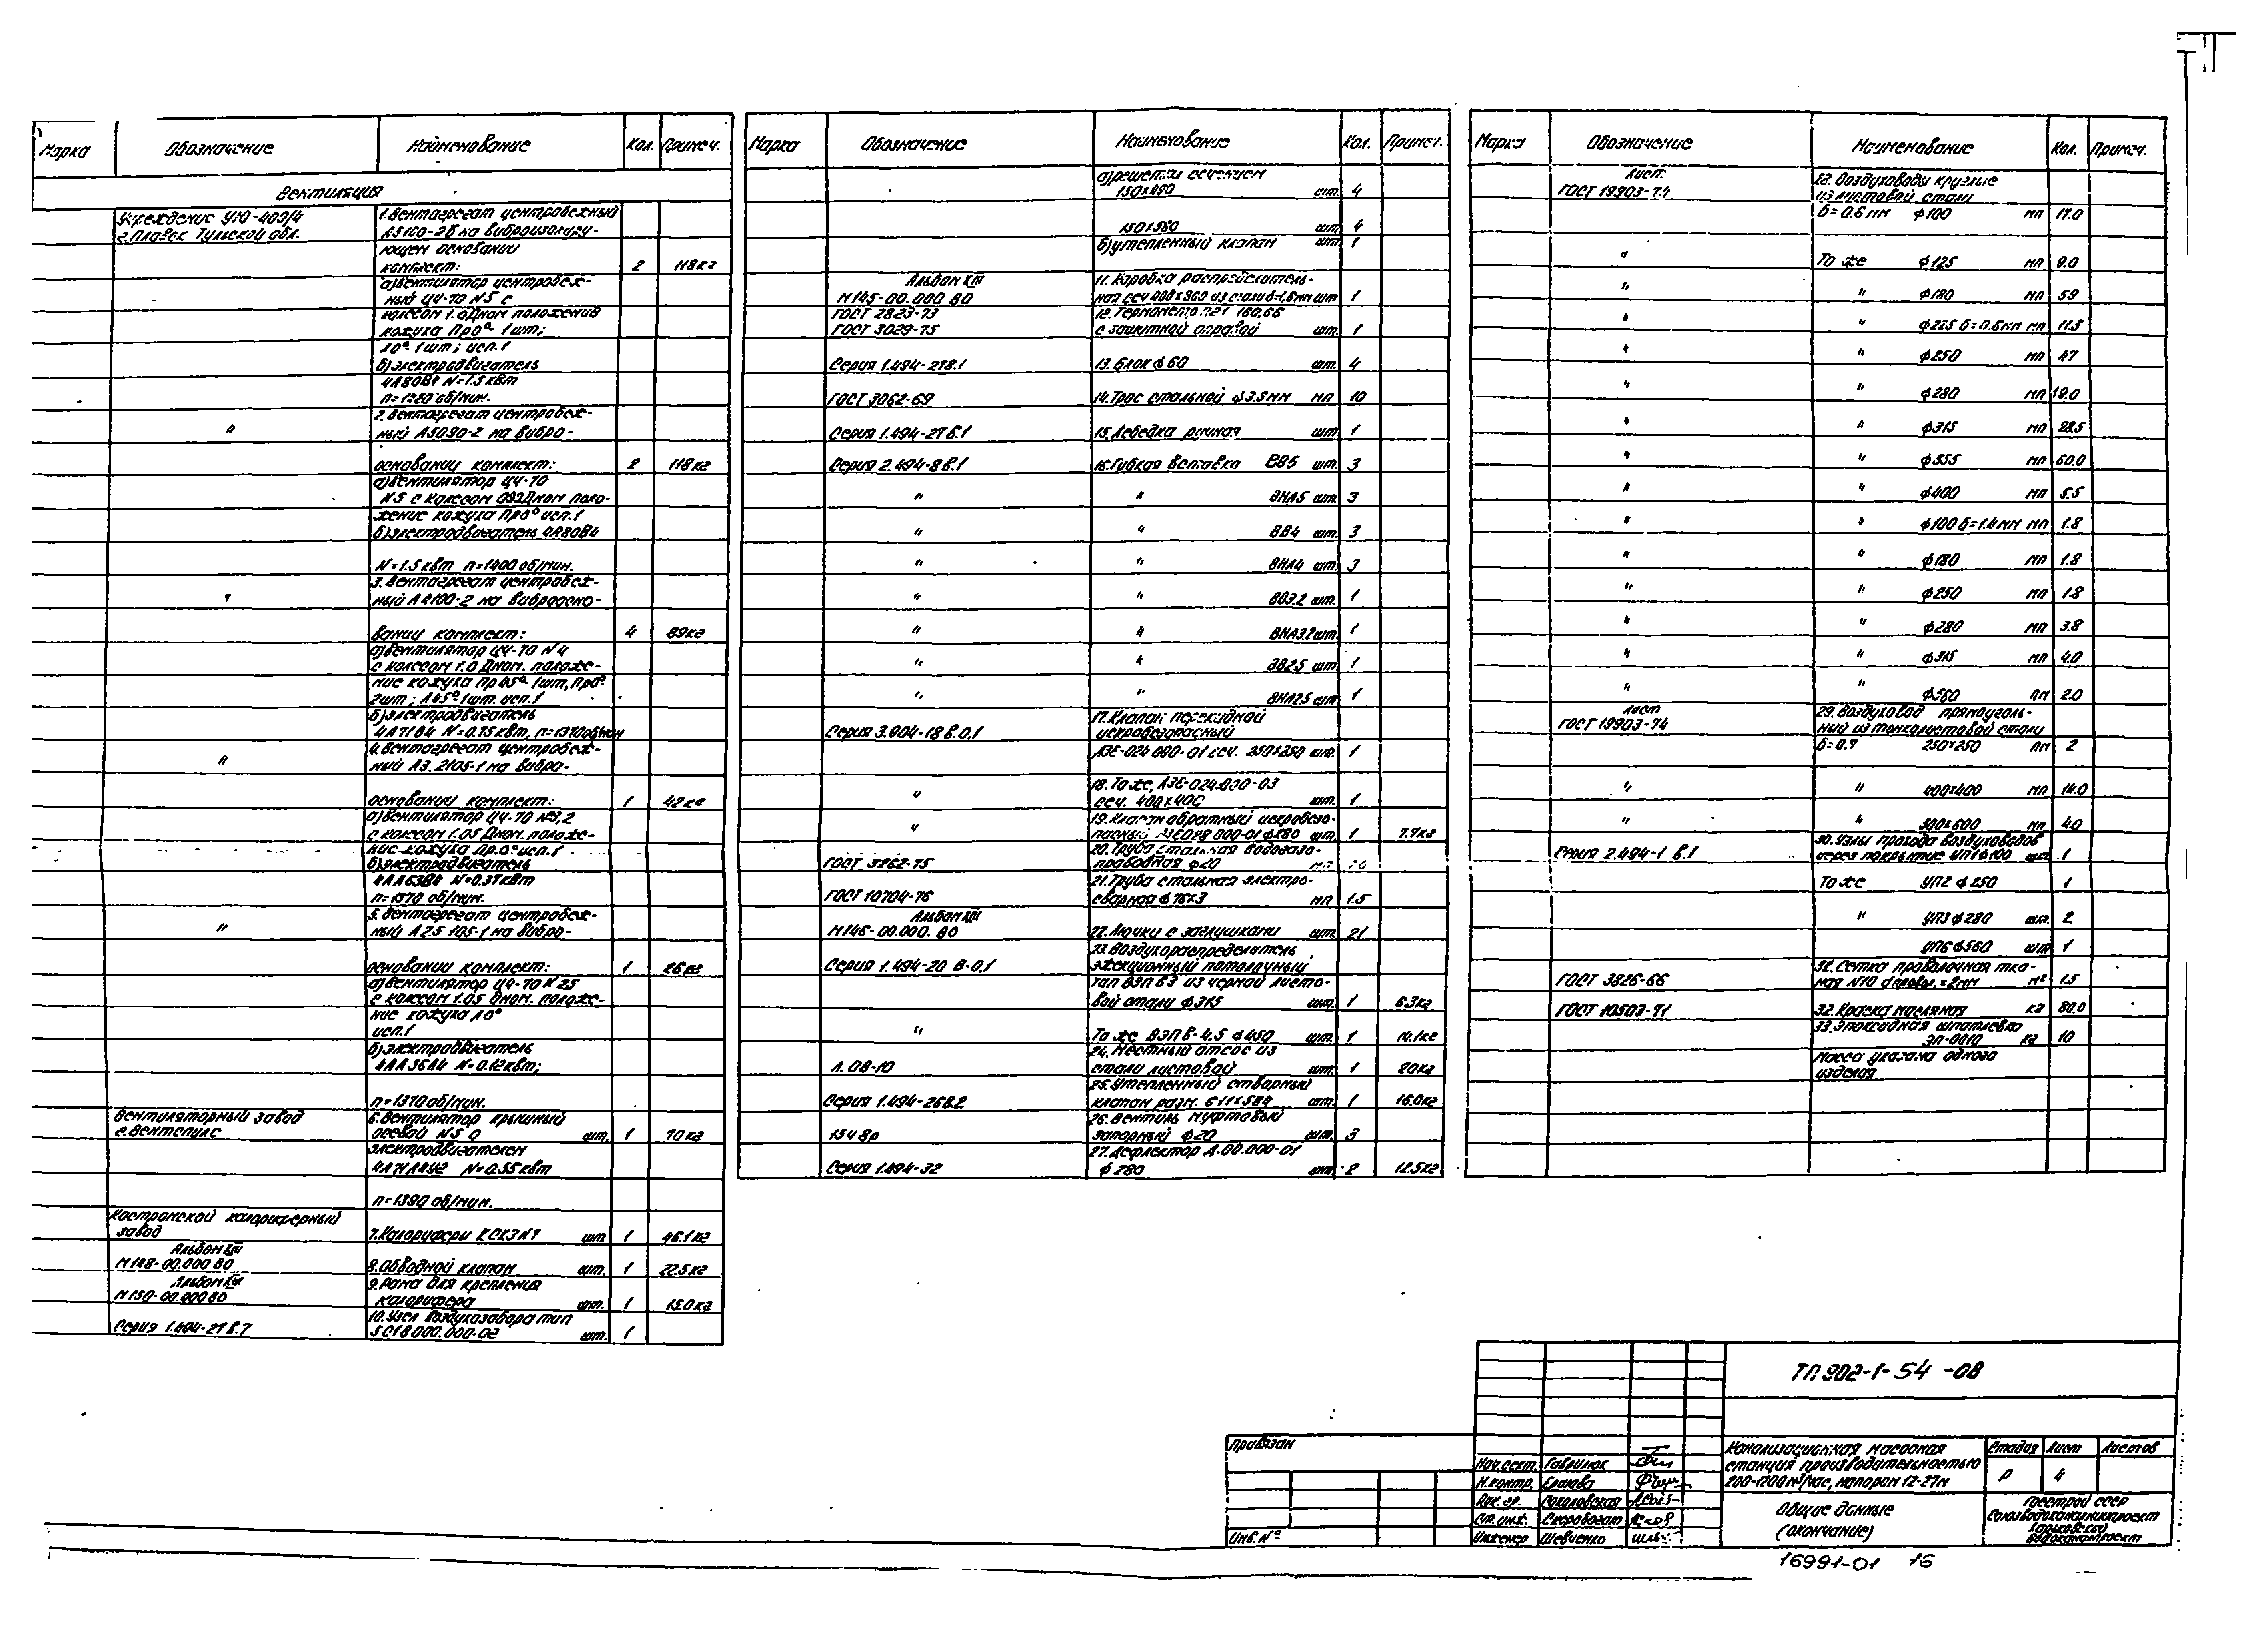 Марка Обозначение Наименование Кол. Примеч.
Вентиляция
Учреждение УЮ-400/4
г. Плавск Тульской обл.
1. Вентагрегат центробежный
А5100-2б на виброизолиру-
ющем основании
комплект: 2 118кг
а) вентилятор центробеж-
ный Ц4-70 N5 с
колесом 1.0Дном положения
кожуха Пр0° 1шт;
Л0° 1шт; исп.1
б) электродвигатель
4А80В4 N=1.5 квт
об/мин.
" 2. Вентагрегат центробеж-
ный А5090-2 на вибро-
основании комплект: 2 118кг
а) вентилятор Ц4-70
N5 с колесом Дном поло-
жение кожуха Пр0° исп.1
б) электродвигатель 4А80В4
N=1.5 квт n=1400 об/мин.
" 3. Вентагрегат центробеж-
ный А4100-2 на виброосно-
вании комплект: 4 89кг
а) вентилятор Ц4-70 N4
с колесом 1.0 Дном. положе-
ние кожуха Пр45° 1шт, Пр0°
2шт; Л45° 1шт. исп.1
б) электродвигатель
4А71В4 N=0.75 квт, n=1370об/мин
" 4. Вентагрегат центробеж-
ный А3.2105-1 на вибро-
основании комплект: 1 42кг
а) вентилятор Ц4-70 N3,2
с колесом 1.05 Дном. положе-
ние кожуха Пр.0° исп.1
б) электродвигатель
4АА63В4 N=0.37квт
n=1370 об/мин.
" 5. Вентагрегат центробеж-
ный А2.5 105-1 на вибро-
основании комплект: 1 26кг
а) вентилятор Ц4-70 N2.5
с колесом 1.05 Дном. положе-
ние кожуха Л0°
исп.1
б) электродвигатель
4АА56А4 N=0.12квт;
n=1370 об/мин.
Вентиляторный завод
г. Вентспилс
6. Вентилятор крышный
осевой N5 с шт. 1 70кг
электродвигателем
N=0.55 квт
n=1390 об/мин.
Костромской калориферный
завод 7. Калориферы КСК3N7 шт 1 46.1кг
Альбом XIII
М148-00.000 ВО 8. Обводной клапан шт. 1 22.5кг
Альбом XIII
М150-00.000ВО 9. Рама для крепления
калорифера шт. 1 15.0кг
Серия 1.494-27 в.7 10. Узел воздухозабора тип
5С18000.000-02 шт. 1
Марка Обозначение Наименование Кол. Примеч.
а) решетки сечением
150х490 шт. 4
150х580 шт. 4
б) утепленный клапан шт. 1
Альбом XIII
М145-00.000 ВО
11. Коробка распределитель-
ная сеч 400х900 из стали б=1,6мм шт 1
ГОСТ 2823-73
ГОСТ 3029-75
12. Термометр 160.66
с защитной оправой шт. 1
Серия 1.494-27в.1 13. Блок ф60 шт. 4
ГОСТ 3062-69 14. Трос стальной ф3.5мм мп 10
Серия 1.494-27 в.1 15. Лебедка ручная шт 1
Серия 2.494-8 в.1 16. Гибкая вставка ВВ5 шт. 3
" " ВНА5 шт. 3
" " ВВ4 шт. 3
" " ВНА4 шт. 3
" " ВВ3.2 шт. 1
" " ВНА3.2шт. 1
" " ВВ2.5 шт. 1
" " ВНА2.5 шт 1
Серия 3.904-18 в.0,1
17. Клапан перекидной
искробезопасный
АЗЕ-024 000-01 сеч. 250х250 шт. 1
" 18. То же, АЗЕ-024.000-03
сеч. 400х400 шт. 1
" 19. Клапан обратный искробезо-
пасный 000-01 ф280 шт. 1 7.7кг
ГОСТ 3262-75 20. Труба стальная водогазо-
проводная ф20 мп
ГОСТ 10704-76 21. Труба стальная электро-
сварная ф76х3 мп 1.5
Альбом XIII
М146-00.000. ВО 22. Лючки с заглушками шт 21
Серия 1.494-20 в-0.1
23. Воздухораспределитель
эжекционный потолочный
тип ВЭПВ3 из черной листо-
вой стали ф315 шт. 1 6.3кг
" То же ВЭПВ-4.5 ф450 шт. 1 14.1кг
Л.08-10 24. Местный отсос из
стали листовой шт. 1 20кг
Серия 1.494-26в.2 25. Утепленный створный
клапан разм. 611х584 шт. 1 16.0кг
15ч8р 26. Вентиль муфтовый
запорный ф20 шт. 3
Серия 1.494-32 27. Дефлектор Д.00.000-01
ф280 шт. 2 12.5кг
Марка Обозначение Наименование Кол. Примеч.
Лист
ГОСТ 19903-74
28. Воздуховоды круглые
из листовой стали
б=0.6мм ф100 мп 17.0
" То же ф125 мп 9.0
" " ф180 мп 59
" " ф225 б=0.6мм мп 11.5
" " ф250 мп 47
" " ф280 мп 19.0
" " ф315 мп 28.5
" " ф355 мп 60.0
" " ф400 мп 5.5
" " ф100 б=1.4мм мп 1.8
" " ф180 мп 1.8
" " ф250 мп 1.8
" " ф280 мп 3.8
" " ф315 мп 4.0
" " ф560 пм 2.0
Лист
ГОСТ 19903-74
29. Воздуховод прямоуголь-
ный из тонколистовой стали
б=0.7 250х250 пм 2
" " 400х400 мп 14.0
" " 300х600 мп 4.0
Серия 2.494-1 в.1
30. Узлы прохода воздуховодов
через покрытие УП1ф100 шт 1
То же УП2 ф250 1
" УП3ф280 шт. 2
УП6ф560 шт 1
ГОСТ 3826-66 31. Сетка проволочная тка-
ная N10 dпровол.=2мм м² 1.5
ГОСТ 10503-71 32. Краска масляная кг 80.0
33. Эпоксидная шпатлевка
ЭП-0010 кг 10
Масса указана одного
изделия
ТП 902-1-54 -ОВ
Привязан
Инв. №
Нач.сект. Гаврилюк
Н.контр. Ершова
Рук.гр. Соколовская
Ст.инж. Скоробогат
Инженер Шевченко
Канализационная насосная
станция производительностью
200-1200м³/час, напором 12-27м
Стадия Лист Листов
Р 4
Общие данные
(окончание)
Госстрой СССР
Союзводоканалниипроект
Харьковский
Водоканалпроект
16991-01 16